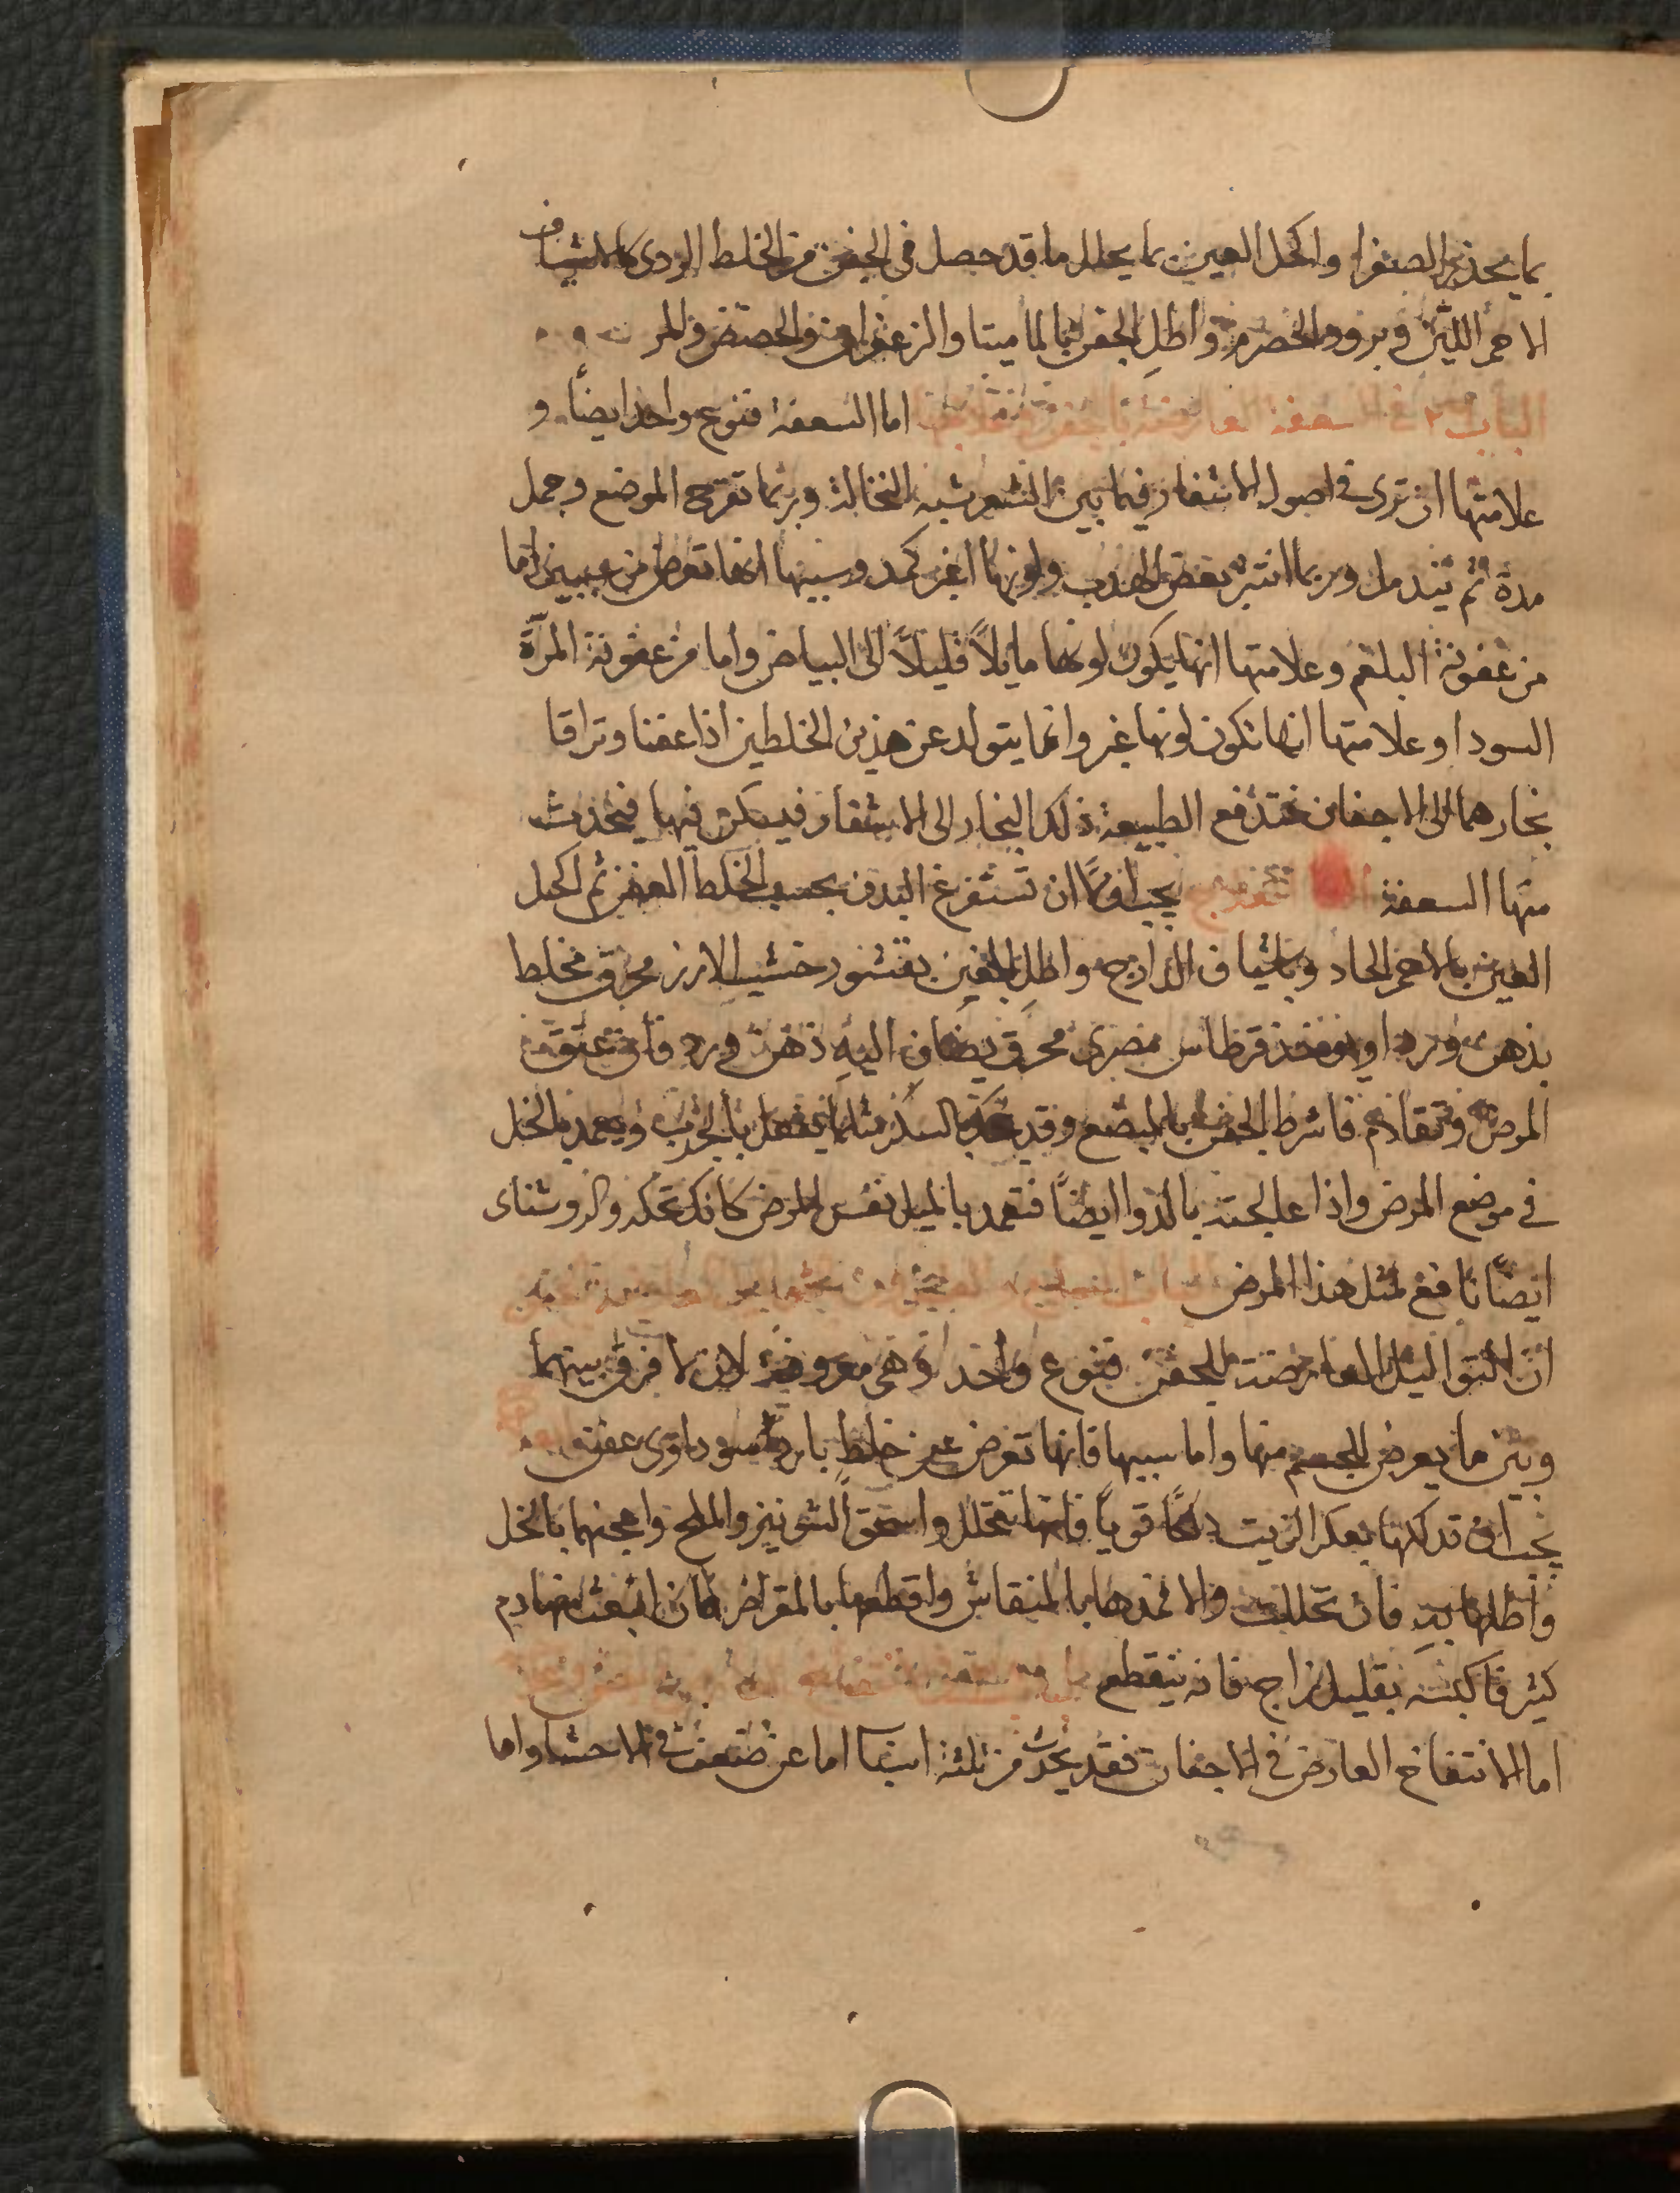 بما يحذر الصفرا واكحل العين بما يحلل ما قد حصل فى الجفن من الخلط الردى كالشياف
الاحمر اللين وبرود الحصرم واطلِ الجفن بالماميثا والزعفران والحضض والمر
الباب فى السعفة العارضة اما السعفة فنوع واحد ايضًا و
علامتها ان ترى فى اصول الاشفار فيما بين الشعر شبه النخالة وربما تقرح الموضع وحمل
مدة ثم يندمل وربما انتثر بعض الهدب ولونها اغبر كمد وسببها انها تعرض من سببين اما
من عفونة البلغم وعلامتها انها يكون لونها مايلاً قليلاً الى البياض واما من عفونة المرّة
السودا وعلامتها انها تكون لونها غبر وانما يتولد عن هذين الخلطين اذا عفنا وتراقا
بخارهما الى الاجفان فتدفع الطبيعة ذلك البخار الى الاشفار فيسكن فيها فيحدث
منها السعفة يجب اولاً ان تستفرغ البدن بحسب الخلط العفن ثم اكحل
العين بالاحمر الحاد وباشياف الزارج واطل الجفن بقشور خشب الارز محرق مخلط
بدهن ورد او يوخذ قرطاس مصرى محرق يضاف اليه دهن ورد فان عتق
المرض وتقادم فاشرط الجفن بالمبضع وقد حكه بالسكر مثلما يفعل بالجرب ويعمد بالخل
فى موضع المرض واذا عالجته بالدوا ايضًا فتعمد بالميل نفس المرض كانك تحكه والروشناى
ايضًا نافع لمثل هذا المرض
انّ الثواليل العارضة للجفن فنوع واحد وهى معروفة لان لا فرق بينهما
وبين ما يعرض للجسم منها واما سببها فانها تعرض عن خلطٍ بارد سوداوى عفن
يجب ان تدلكها بعكر الزيت دلكًا قوياً فانها تتحلل واسحق الشونيز والملح واعجنهما بالخل
واطلها به فان تحللت والا فمدها بالمنقاش واقطعها بالمقراض فان انبعث منها دم
كثير فاكبسه بقليل زاج فانه ينقطع
اما الانتفاخ العارض فى الاجفان فقد يحدث من ثلثة اسباب اما عن ضعف فى الاحشا واما